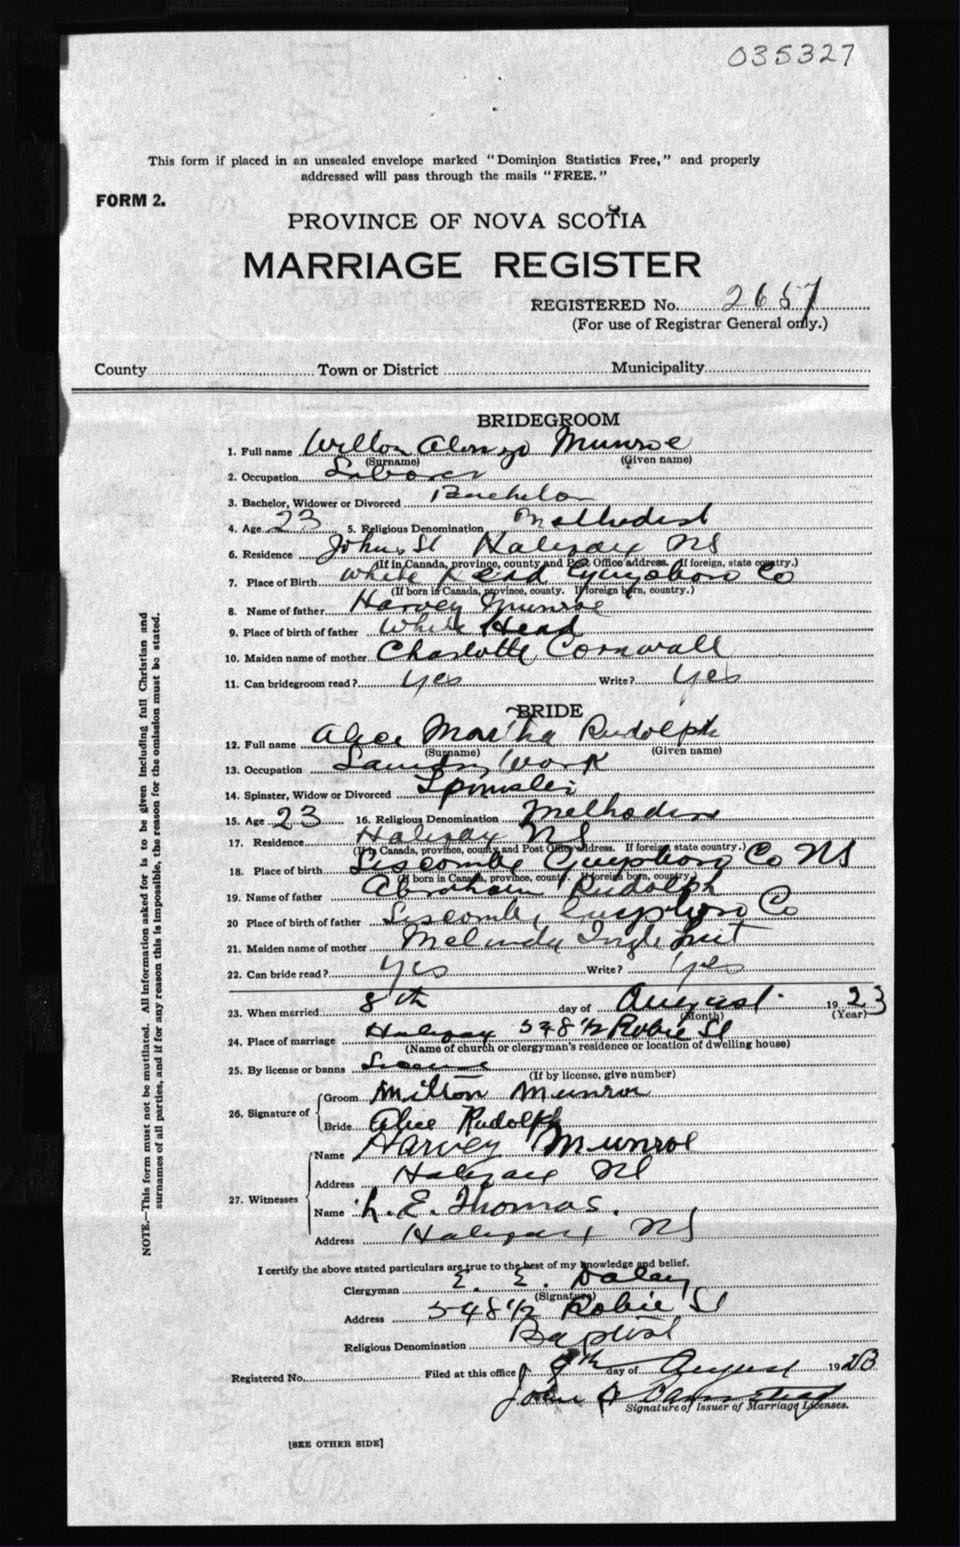 035327
This form if placed in an unsealed envelope marked "Dominion Statistics Free," and properly
addressed will pass through the mails "FREE."
FORM 2.
PROVINCE OF NOVA SCOTIA
MARRIAGE REGISTER
REGISTERED No. 2657
(For use of Registrar General only.)
County Town or District Municipality
BRIDEGROOM
1. Full name Alonzo Munroe
(Surname) (Given name)
2. Occupation Laborer
3. Bachelor, Widower or Divorced Bachelor
4. Age 23 5. Religious Denomination Methodist
6. Residence Johns St Halifax NS
(If in Canada, province, county and Post Office address. If foreign, state country.)
7. Place of Birth White Head Guysboro Co
(If born in Canada, province, county. If foreign born, country.)
8. Name of father Harvey Munroe
9. Place of birth of father White Head
10. Maiden name of mother Charlotte Cornwall
11. Can bridegroom read? yes Write? yes
BRIDE
12. Full name Alice Martha Rudolph
(Surname) (Given name)
13. Occupation Work
14. Spinster, Widow or Divorced Spinster
15. Age 23 16. Religious Denomination Methodist
17. Residence Halifax NS
(If in Canada, province, county and Post Office address. If foreign state country.)
18. Place of birth Liscombe Guysboro Co NS
(If born in Canada, province, county. If foreign born, country.)
19. Name of father Abraham Rudolph
20 Place of birth of father Liscombe Guysboro Co
21. Maiden name of mother Melinda
22. Can bride read? yes Write? yes
23. When married 8th day of August 1923
(Month) (Year)
24. Place of marriage Halifax 548 1/2 Robie St
(Name of church or clergyman's residence or location of dwelling house)
25. By license or banns License
(If by license, give number)
26. Signature of
Groom Milton Munroe
Bride Alice Rudolph
27. Witnesses
Name Harvey Munroe
Address Halifax NS
Name L. E. Thomas.
Address Halifax NS
I certify the above stated particulars are true to the best of my knowledge and belief.
Clergyman E. E. Daley
(Signature)
Address 548 1/2 Robie St
Religious Denomination Baptist
Registered No. Filed at this office 9th day of August 1923
John
Signature of Issuer of Marriage Licenses.
[SEE OTHER SIDE]
NOTE.—This form must not be mutilated. All information asked for is to be given including full Christian and
surnames of all parties, and if for any reason this is impossible, the reason for the omission must be stated.